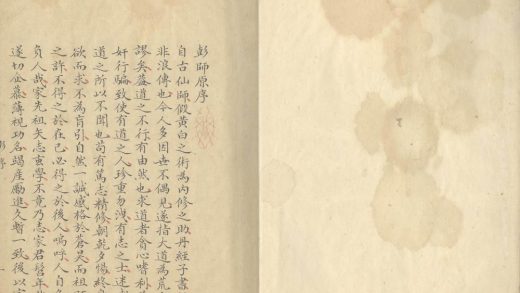 彭師原序
自古仙師假黃白之術為內修之助丹經子書
非浪傳也今人多因世不偶見遂指大道為荒
謬矣蓋道之不行有由然也求道者會心嗜利
奸行騙致使有道之人珍重勿洩有志之士迷
道之所以不聞也苟有篤志精修朝乾夕惕終
欲而求不為肓引自然一誠感格於蒼昊而祖
之許不得之於在己必得之於後人嗚呼人自
負人哉家先祖矢志玄學不竟乃志家君髫年
遂切企慕薄視功名竭產勵進久暫一致後以
序 一